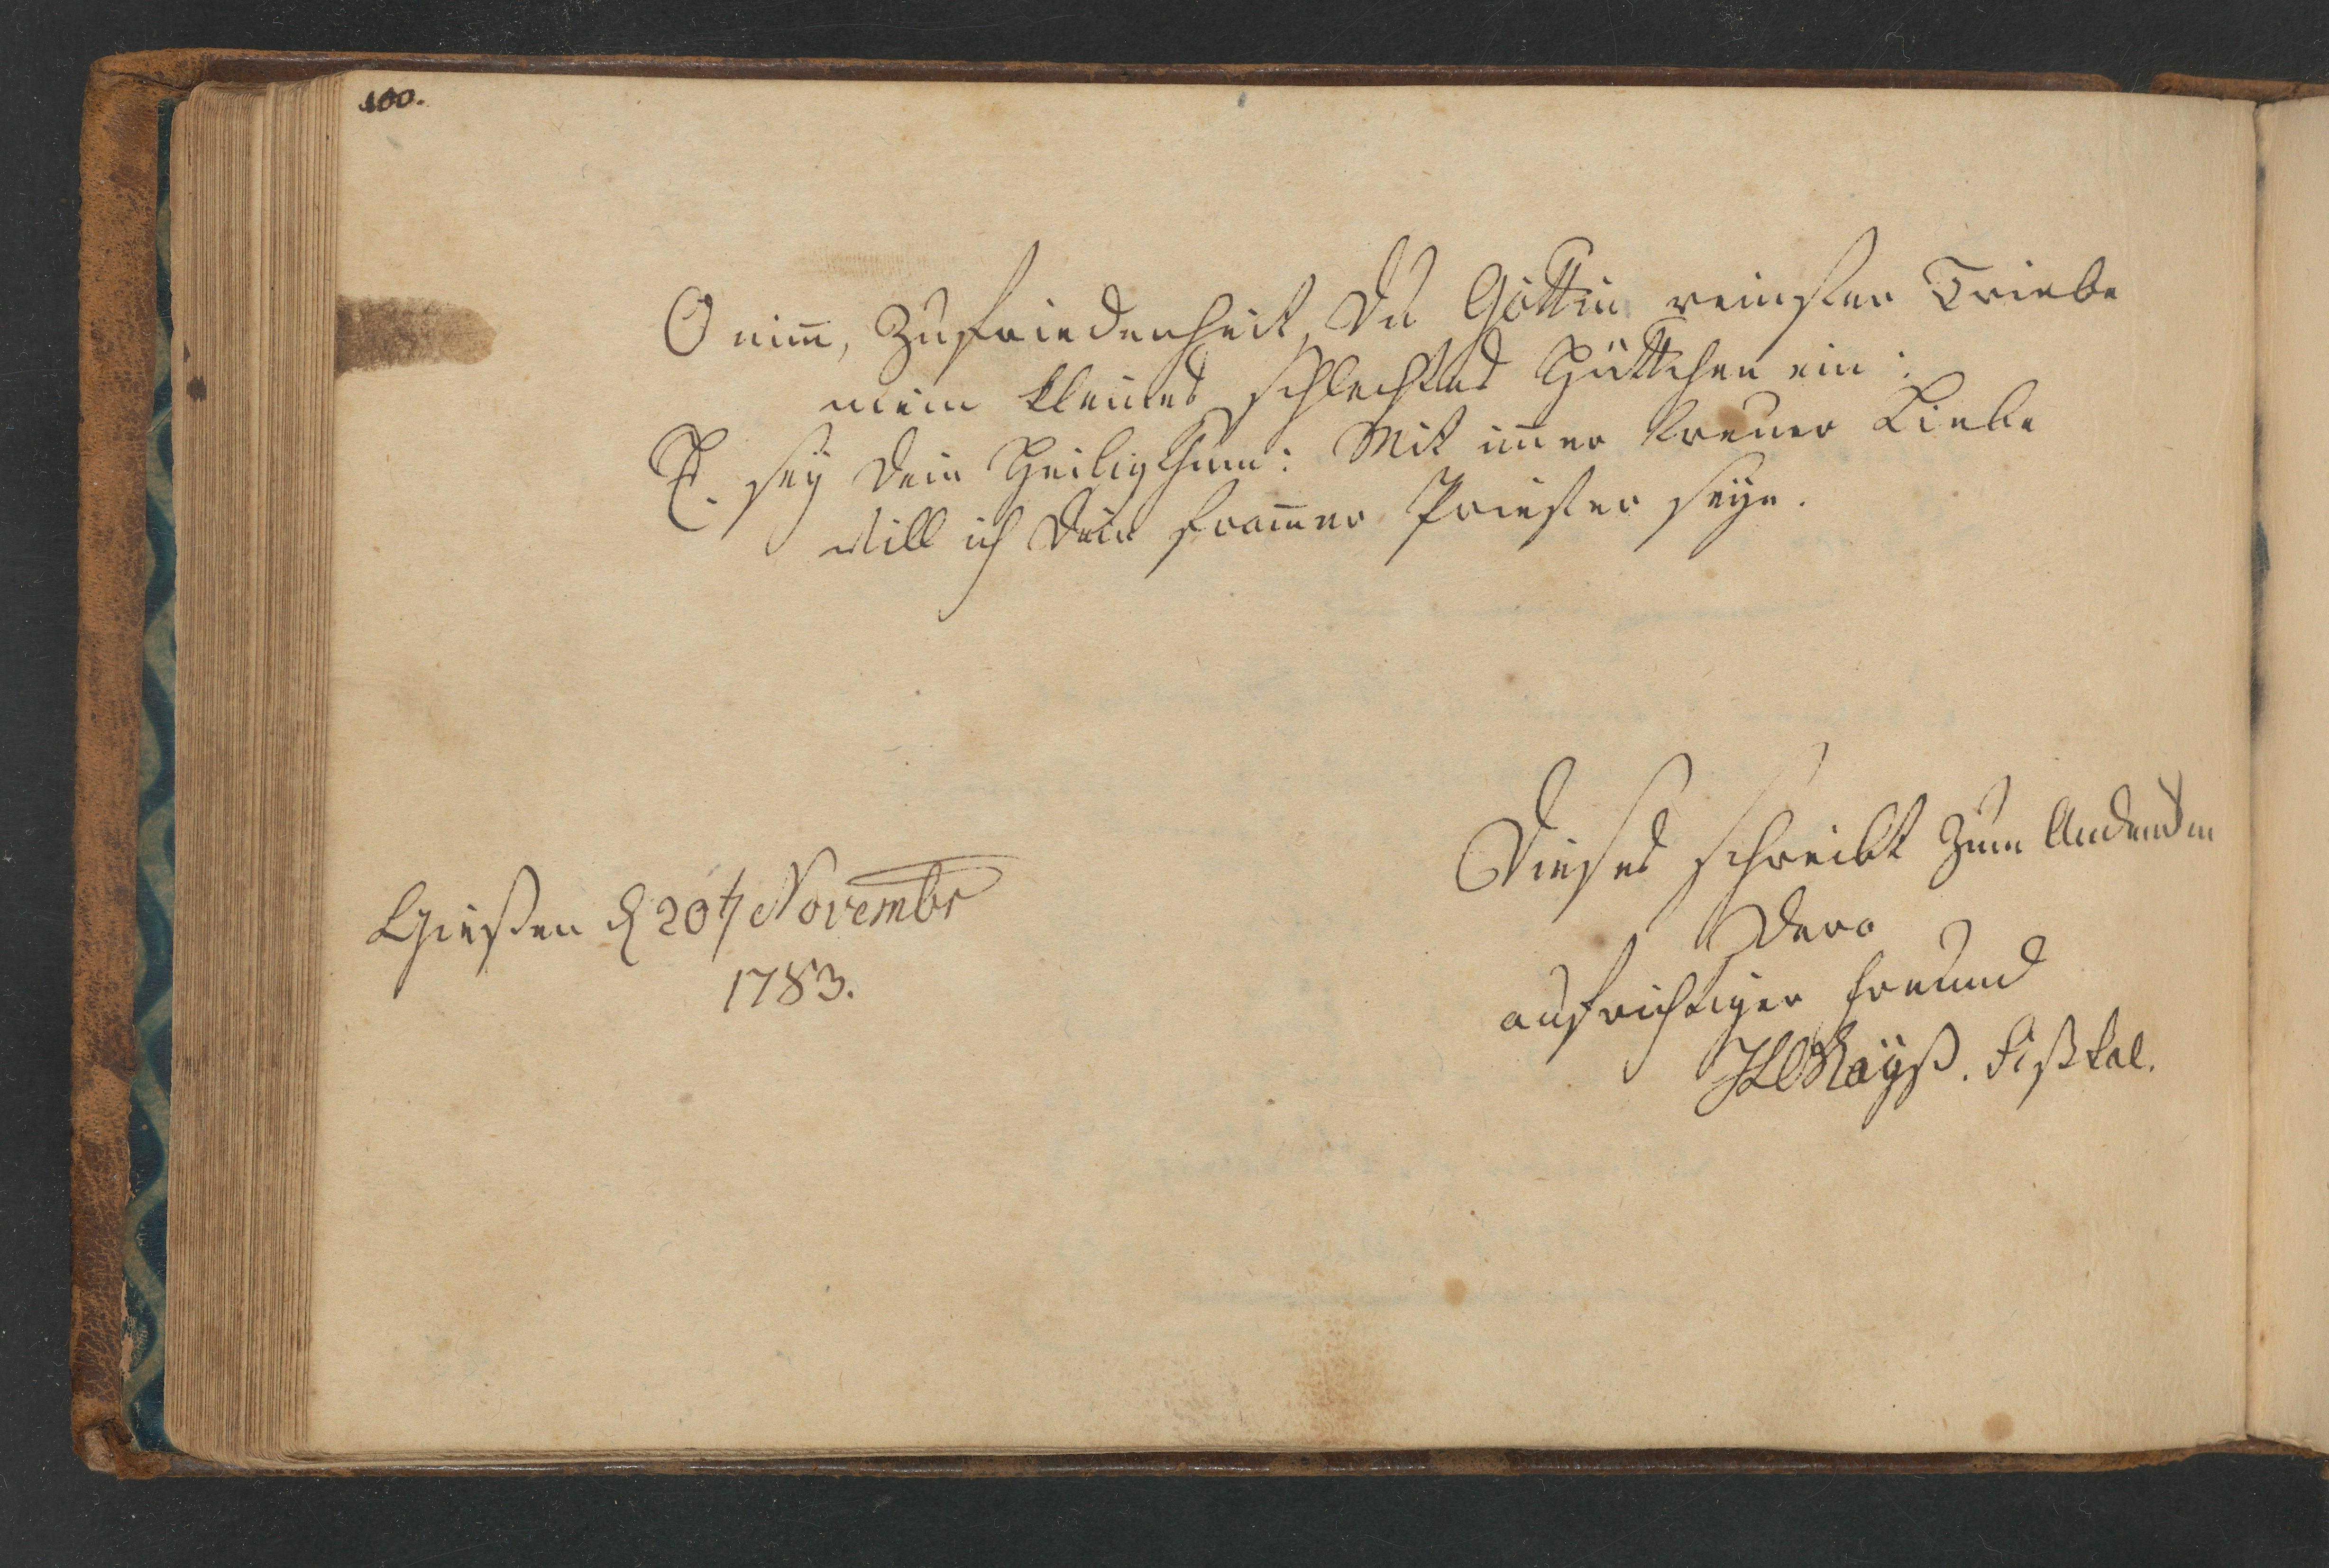 100.
O nim̅, Zufriedenheit, du Göttin reinster Triebe
mein kleines schlechtes Hüttchen ein:
Es sey dein Heiligthum: Mit im̅er treuer Liebe
Will ich dein from̅er Priester seyn.
Dieses schreibt zum Andenken
Dero
aufrichtiger freund
Gießen d 20t Novembr
1783.